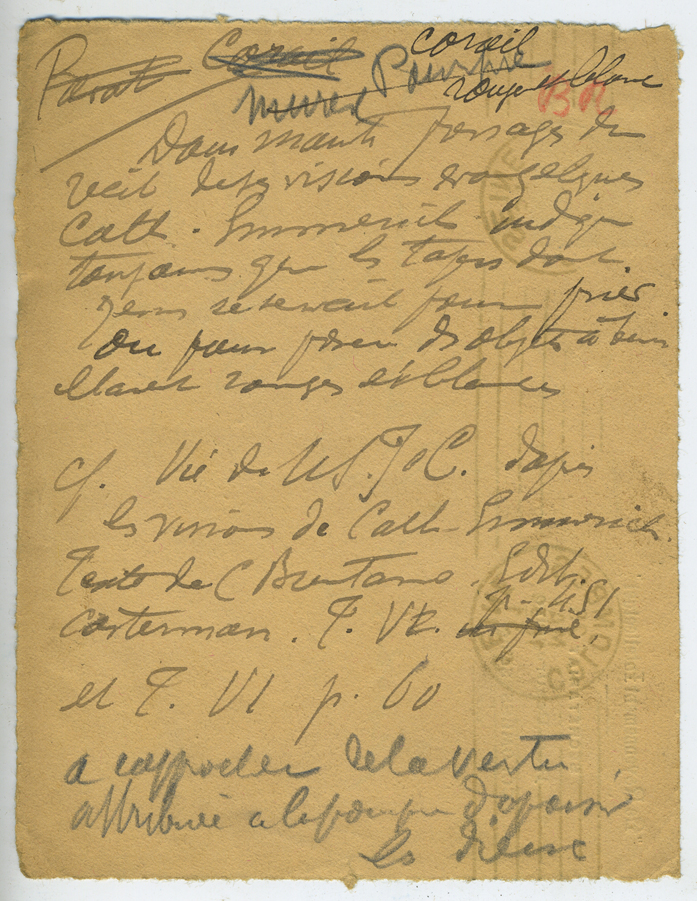 Corail
corail
Murex Pourpre
rouge et blanc
BR
Dans maints passages du
récit de ses visions évangéliques
Cath. Emmerich indique
toujours que les tapis dont
Jésus se servait pour prier
ou pour poser des objets à
étaient rouges et blancs
cf. Vie de N.S. J. C. d'après
les visions de Cath. Emmerich
Texte de C Brentano. Edit.
Casterman. T. V p. 451
et T. VI p. 60
a rapprocher de la vertu
attribuée a la pourpre d'apaiser
les dieux